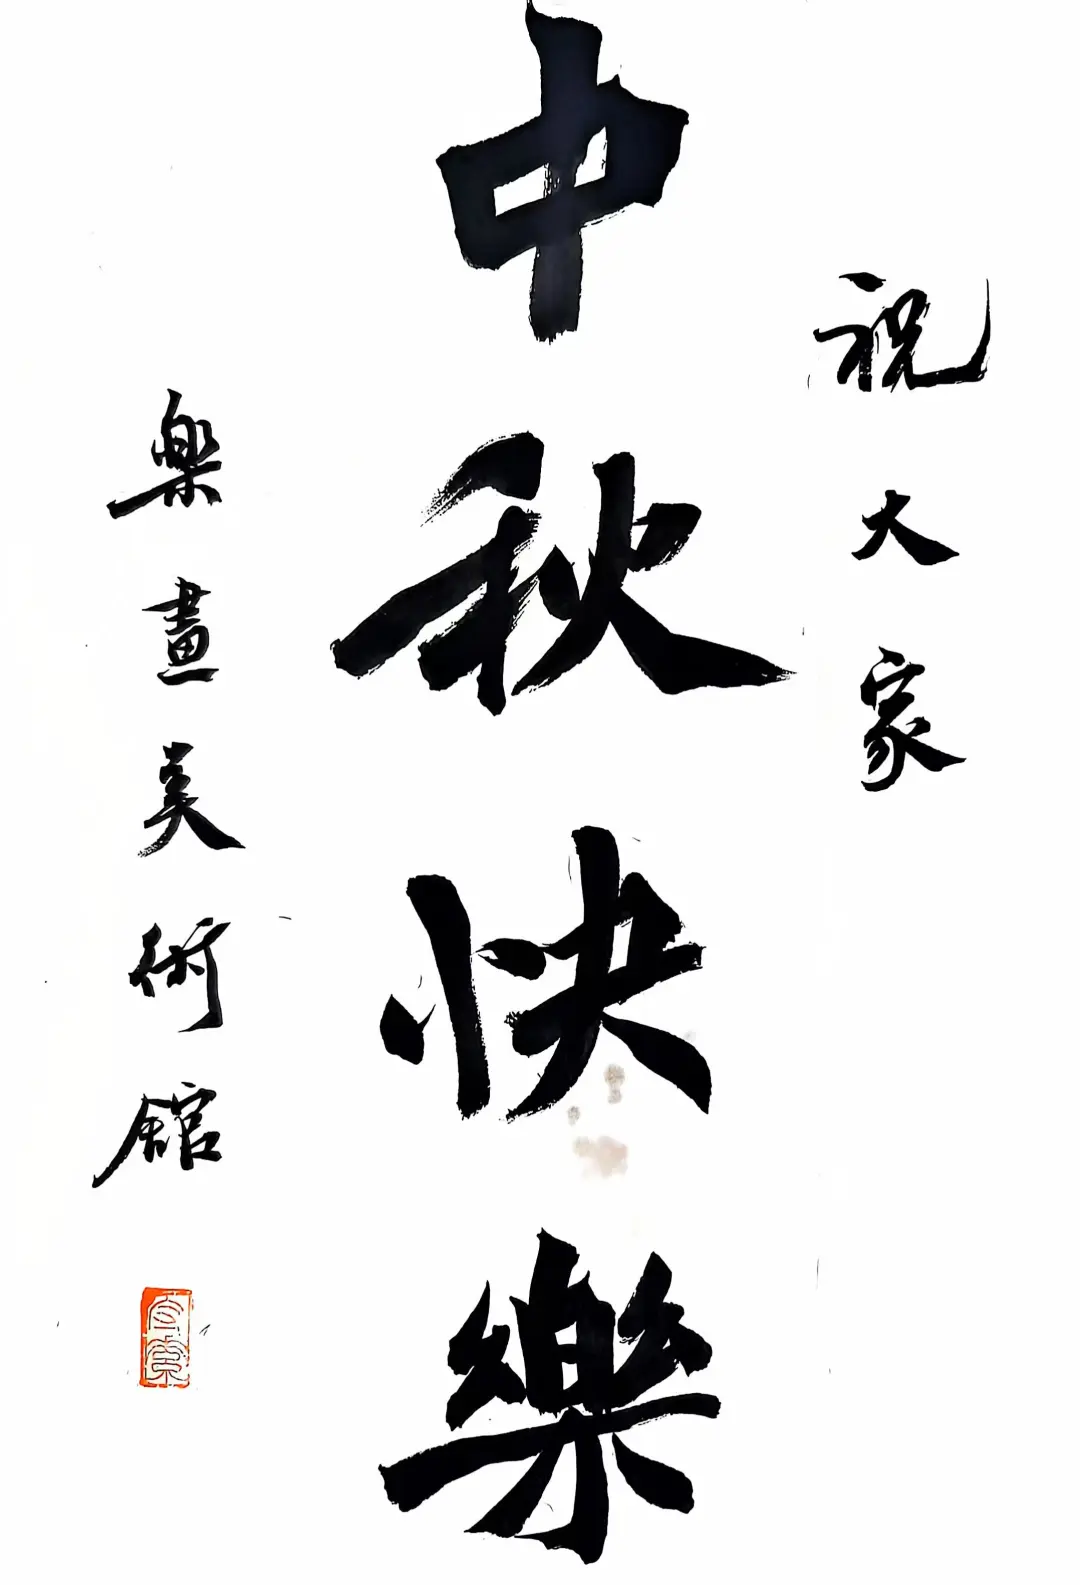 祝大家
中秋快樂
樂畫美術館